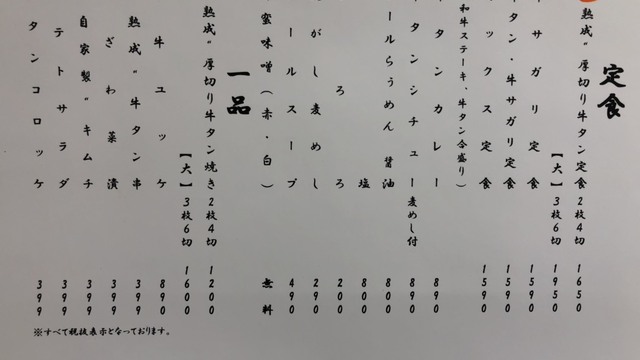 定食
熟成〝厚切り牛タン定食 2枚4切 1650
【大】3枚6切 1950
サガリ定食 1590
タン・牛サガリ定食 1590
ックス定食 1590
和牛ステーキ、牛タン合盛り)
タンカレー 890
タンシチュー 麦めし付 890
ールらうめん 醤油 800
塩 800
ろろ 200
がし麦めし 290
ールスープ 490
蜜味噌(赤・白) 無料
一品
熟成〝厚切り牛タン焼き 2枚4切 1200
【大】3枚6切 1600
牛ユッケ 890
熟成〝牛タン串 399
ざわ菜漬 399
自家製〝キムチ 399
テトサラダ 399
タンコロッケ 399
※すべて税抜表示となっております。